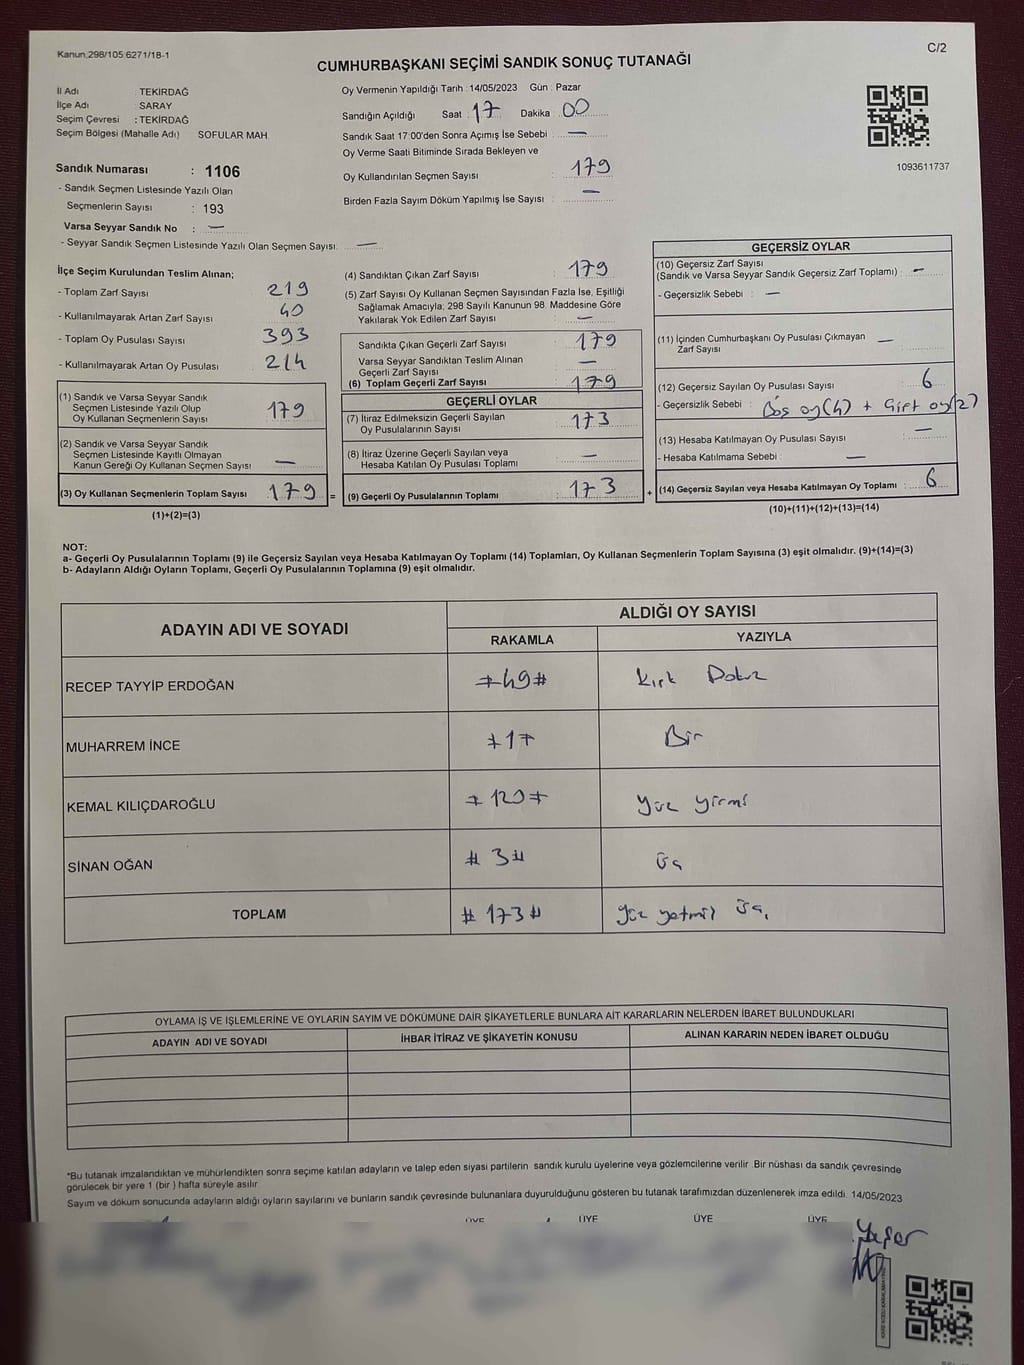 Kanun 298/105 6271/18-1
C/2
CUMHURBAŞKANI SEÇİMİ SANDIK SONUÇ TUTANAĞI
İl Adı : TEKİRDAĞ
İlçe Adı : SARAY
Seçim Çevresi : TEKİRDAĞ
Seçim Bölgesi (Mahalle Adı) SOFULAR MAH.
Oy Vermenin Yapıldığı Tarih : 14/05/2023 Gün : Pazar
Sandığın Açıldığı Saat : 17 Dakika : 00
Sandık Saat 17:00'den Sonra Açımış İse Sebebi : —
Oy Verme Saati Bitiminde Sırada Bekleyen ve
Oy Kullandırılan Seçmen Sayısı : 179
Birden Fazla Sayım Döküm Yapılmış İse Sayısı : —
1093611737
Sandık Numarası : 1106
- Sandık Seçmen Listesinde Yazılı Olan
Seçmenlerin Sayısı : 193
Varsa Seyyar Sandık No : —
- Seyyar Sandık Seçmen Listesinde Yazılı Olan Seçmen Sayısı: —
İlçe Seçim Kurulundan Teslim Alınan;
- Toplam Zarf Sayısı 219
- Kullanılmayarak Artan Zarf Sayısı 40
- Toplam Oy Pusulası Sayısı 393
- Kullanılmayarak Artan Oy Pusulası 214
(1) Sandık ve Varsa Seyyar Sandık
Seçmen Listesinde Yazılı Olup
Oy Kullanan Seçmenlerin Sayısı 179
(2) Sandık ve Varsa Seyyar Sandık
Seçmen Listesinde Kayıtlı Olmayan
Kanun Gereği Oy Kullanan Seçmen Sayısı —
(3) Oy Kullanan Seçmenlerin Toplam Sayısı 179 =
(1)+(2)=(3)
(4) Sandıktan Çıkan Zarf Sayısı : 179
(5) Zarf Sayısı Oy Kullanan Seçmen Sayısından Fazla İse, Eşitliği
Sağlamak Amacıyla; 298 Sayılı Kanunun 98. Maddesine Göre
Yakılarak Yok Edilen Zarf Sayısı : —
Sandıkta Çıkan Geçerli Zarf Sayısı : 179
Varsa Seyyar Sandıktan Teslim Alınan
Geçerli Zarf Sayısı : —
(6) Toplam Geçerli Zarf Sayısı : 179
GEÇERLİ OYLAR
(7) İtiraz Edilmeksizin Geçerli Sayılan
Oy Pusulalarının Sayısı : 173
(8) İtiraz Üzerine Geçerli Sayılan veya
Hesaba Katılan Oy Pusulası Toplamı : —
(9) Geçerli Oy Pusulalarının Toplamı : 173 +
GEÇERSİZ OYLAR
(10) Geçersiz Zarf Sayısı
(Sandık ve Varsa Seyyar Sandık Geçersiz Zarf Toplamı) : —
- Geçersizlik Sebebi : —
(11) İçinden Cumhurbaşkanı Oy Pusulası Çıkmayan
Zarf Sayısı —
(12) Geçersiz Sayılan Oy Pusulası Sayısı : 6
- Geçersizlik Sebebi : Boş oy(4) + Çift oy(2)
(13) Hesaba Katılmayan Oy Pusulası Sayısı : —
- Hesaba Katılmama Sebebi : —
(14) Geçersiz Sayılan veya Hesaba Katılmayan Oy Toplamı : 6
(10)+(11)+(12)+(13)=(14)
NOT:
a- Geçerli Oy Pusulalarının Toplamı (9) ile Geçersiz Sayılan veya Hesaba Katılmayan Oy Toplamı (14) Toplamları, Oy Kullanan Seçmenlerin Toplam Sayısına (3) eşit olmalıdır. (9)+(14)=(3)
b- Adayların Aldığı Oyların Toplamı, Geçerli Oy Pusulalarının Toplamına (9) eşit olmalıdır.
ADAYIN ADI VE SOYADI
ALDIĞI OY SAYISI
RAKAMLA YAZIYLA
RECEP TAYYİP ERDOĞAN #49# Kırk Dokuz
MUHARREM İNCE #1# Bir
KEMAL KILIÇDAROĞLU #120# Yüz yirmi
SİNAN OĞAN #3# üç
TOPLAM #173# Yüz yetmiş üç
OYLAMA İŞ VE İŞLEMLERİNE VE OYLARIN SAYIM VE DÖKÜMÜNE DAİR ŞİKAYETLERLE BUNLARA AİT KARARLARIN NELERDEN İBARET BULUNDUKLARI
ADAYIN ADI VE SOYADI İHBAR İTİRAZ VE ŞİKAYETİN KONUSU ALINAN KARARIN NEDEN İBARET OLDUĞU
*Bu tutanak imzalandıktan ve mühürlendikten sonra seçime katılan adayların ve talep eden siyasi partilerin sandık kurulu üyelerine veya gözlemcilerine verilir. Bir nüshası da sandık çevresinde
görülecek bir yere 1 (bir ) hafta süreyle asılır.
Sayım ve döküm sonucunda adayların aldığı oyların sayılarını ve bunların sandık çevresinde bulunanlara duyurulduğunu gösteren bu tutanak tarafımızdan düzenlenerek imza edildi. 14/05/2023
ÜYE ÜYE ÜYE ÜYE